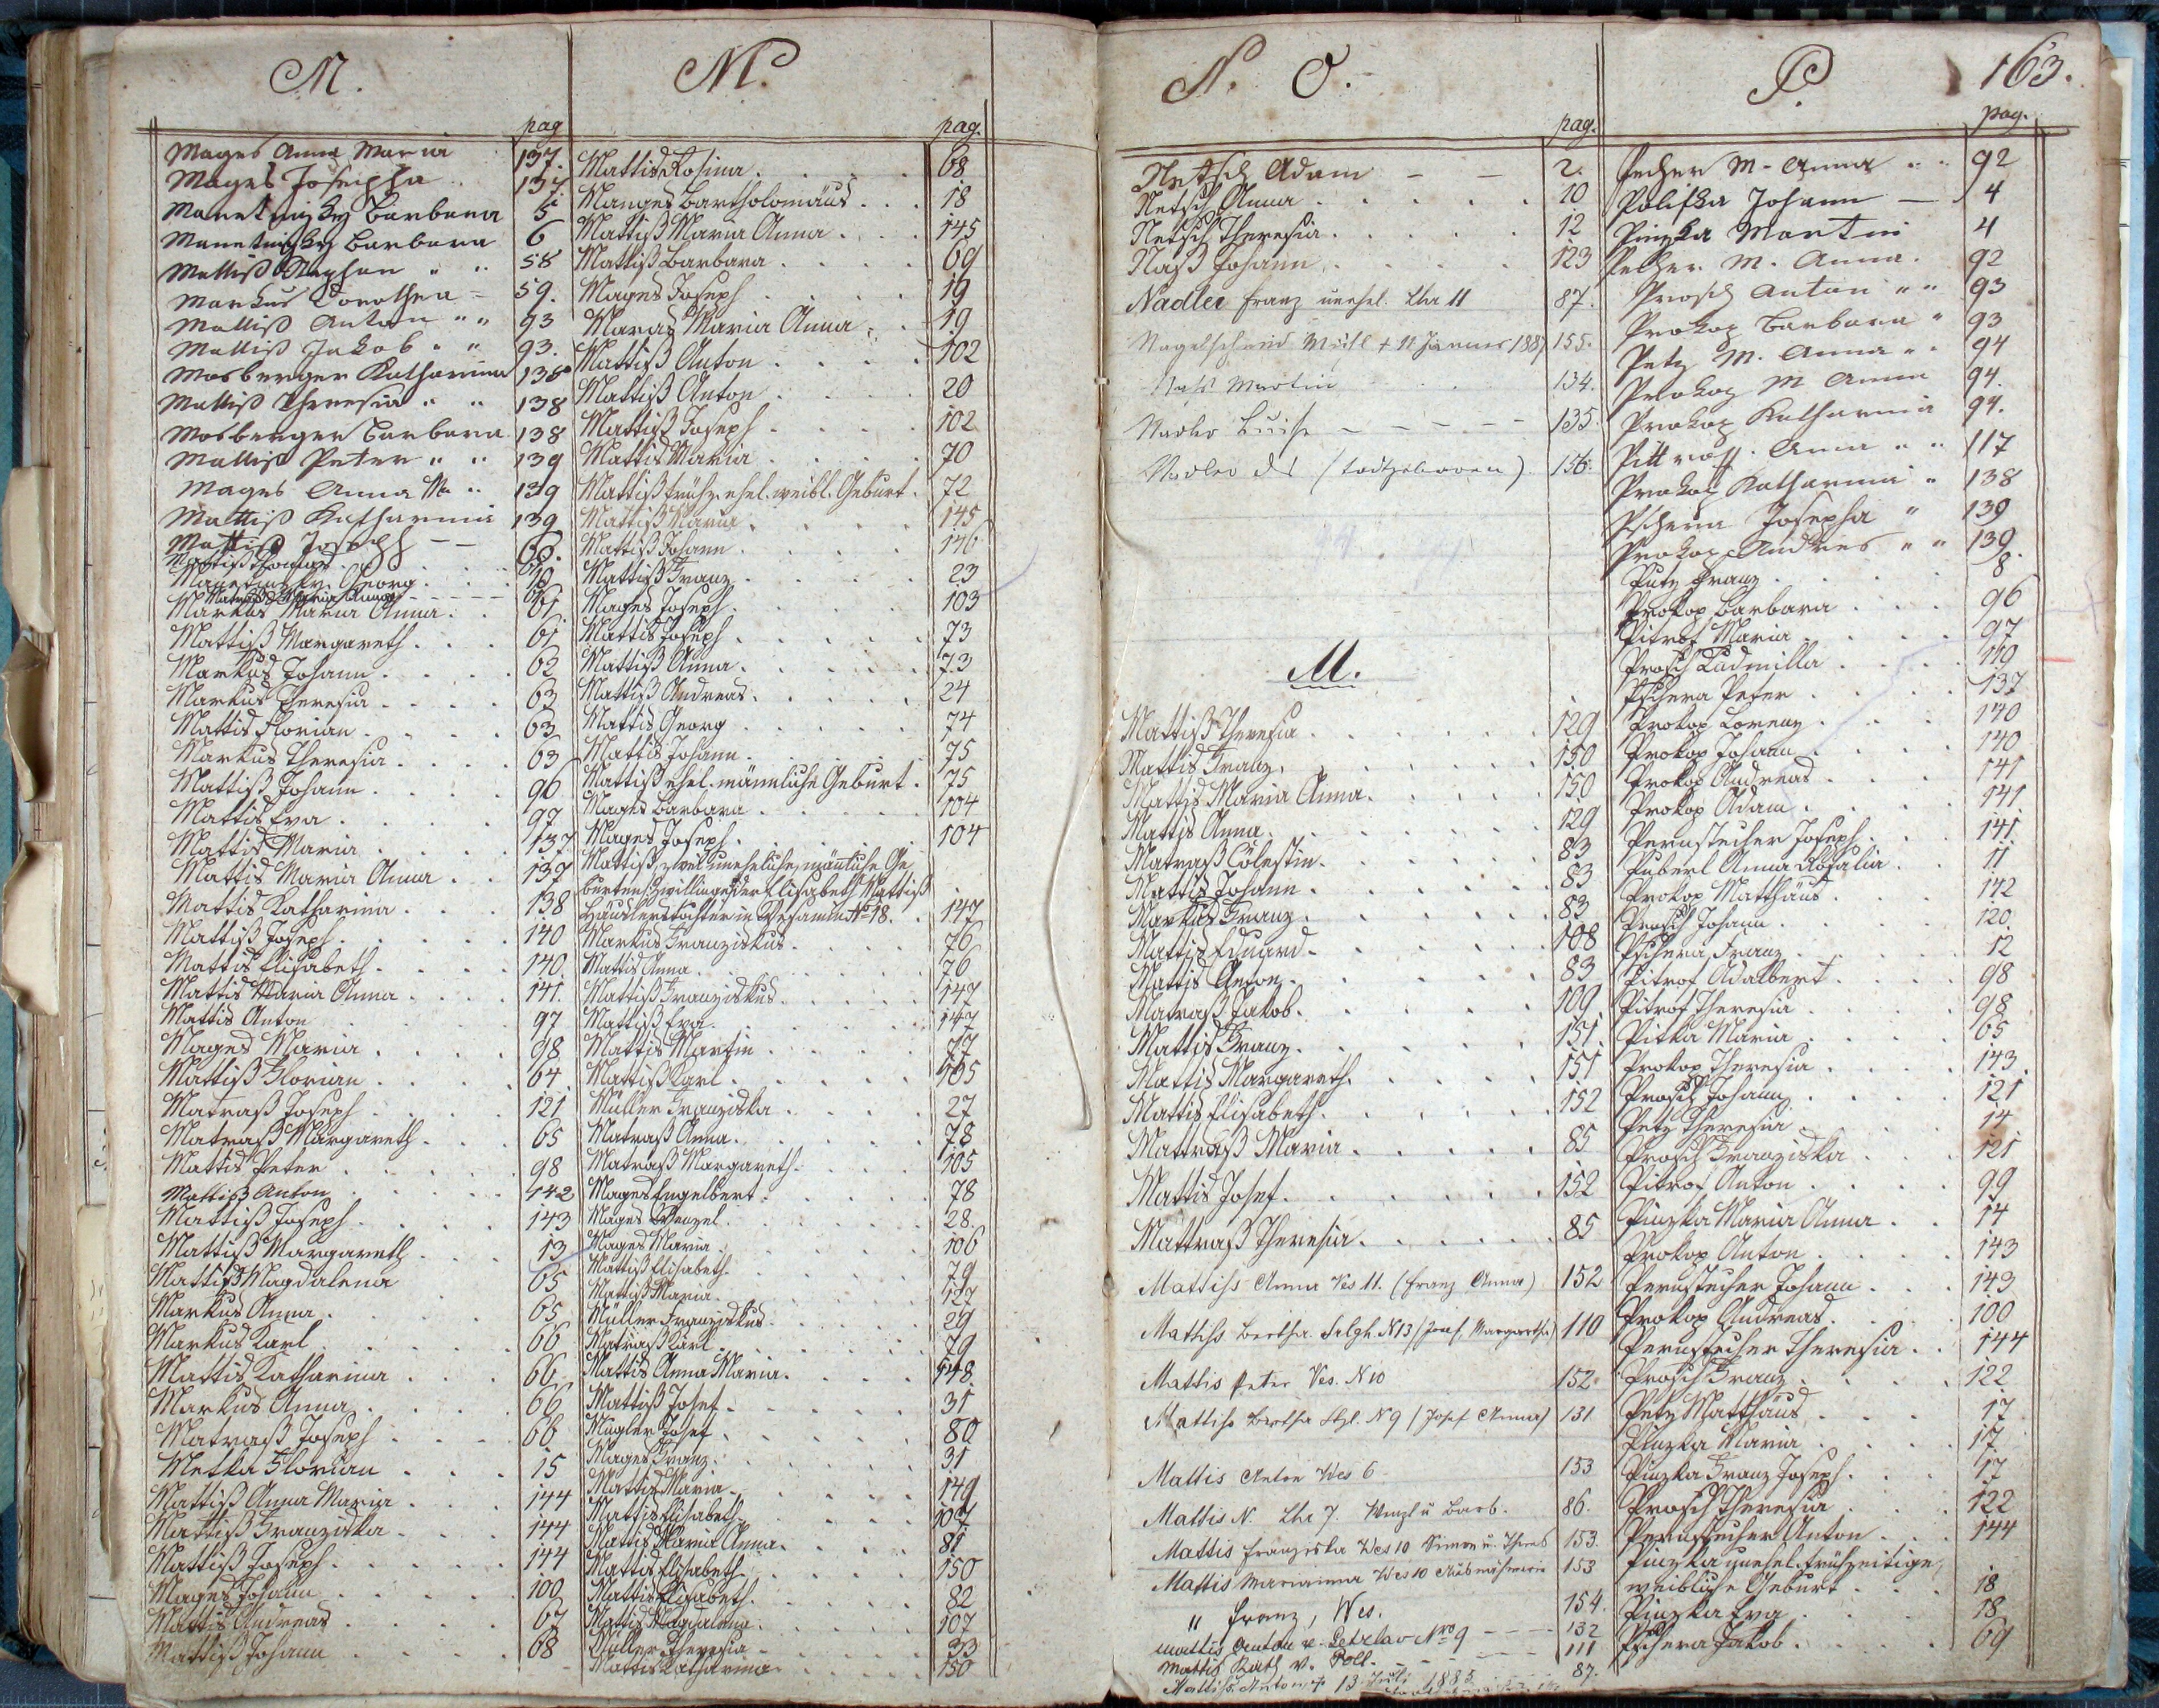 M.
pag
Mages Anna Maria 137.
Mages Josepha 137.
Manetinsky Barbara 5
Manetinsky Barbara 6
Mattiß Stephan 58
Markus Dorothea 59.
Mattiß Anton 93
Mattiß Jakob 93.
Mosberger Katharina 138
Mattiß Theresia 138
Mosberger Barbara 138
Mattiß Peter 139
Mages Anna M. 139
Mattiß Katharina 139
Mattiß Joseph 60.
Mattiß Thomas
Georg 10
Maria Anna
Markus Maria Anna 61
Mattiß Margareth 61
Markus Johann 62
Markus Theresia 63
Mattis Florian 63
Markus Theresia 63
Mattiß Johann 96
Mattis Eva 97
Mattis Maria 137
Mattis Maria Anna 137
Mattis Katharina 138
Mattiß Joseph 140
Mattis Elisabeth 140.
Mattis Maria Anna 141.
Mattis Anton 97
Mages Maria 98
Mattiß Florian 64
Matraß Joseph 121
Matraß Margareth 65
Mattis Peter 98
Mattiß Anton 142
Mattiß Joseph 143
Mattiß Margareth 13
Mattiß Magdalena 65
Markus Anna 65
Markus Karl 66
Mattis Katharina 66
Markus Anna 66
Matraß Joseph 66
Metka Florian 15
Mattiß Anna Maria 144
Mattiß Franziska 144
Mattiß Joseph 144
Mages Johann 100
Mattis Andreas 67
Mattiß Johann 68
M.
pag.
Mattis Rosina 68
Manges Bartholomäus 18
Mattiß Maria Anna 145
Mattiß Barbara 69
Mages Joseph 19
Maras Maria Anna 19
Mattiß Anton 102
Mattiß Anton 20
Mattiß Joseph 102
Mattis Maria 70
Mattiß frühz. ehel. weibl. Geburt. 72
Mattiß Maria 145
Mattiß Johann 146
Mattiß Franz 23
Mages Joseph 103
Mattis Joseph 73
Mattiß Anna 73
Mattiß Andreas 24
Mattis Georg 74
Mattis Johann 75
Mattiß ehel. männliche Geburt. 75
Mages Barbara 104
Mages Joseph 104
Mattiß, zwei unehliche, männliche Ge
burten: Zwillinge der Elisabeth Mattiß
Häuslerstochter in Wesamin No 18. 147
Markus Franziskus 76
Mattis Anna 76
Mattiß Franziskus 147
Mattiß Eva 147
Mattis Martin 77
Mattiß Karl 105
Müller Franziska 27
Matraß Anna 78
Matraß Margareth 105
Mages Engelbert 78
Mages Wenzel 28.
Mages Maria 106
Mattiß Elisabeth 79
Mattiß Maria 127
Müller Franziskus 29
Matraß Karl 79
Mattis Anna Maria 148.
Mattiß Josef 31
Mugler Josef 80
Mages Franz 31
Mattis Maria 149
Mattis Elisabeth 107
Mattis Maria Anna 81
Mattis Elisabeth 150
Mattis Elisabeth 82
Mattis Magdalena 107
Müller Theresia 33
Mattis Katharina 150
N. O.
pag.
Netsch Adam 2.
Netsch Anna 10
Netsch Theresia 12
Naß Johann 123
Nadler Franz unehel. Lhr 11 87.
Nagelschmid + 12 Januar 1887 155.
Martin 134.
Nadler Luise 135.
Nadler (todtgeboren) 156.
M.
Mattiß Theresia 129
Mattis Franz 150
Mattis Maria Anna 150
Mattis Anna 129
Matraß Cölestin 83
Mattis Johann 83
Markus Franz 83
Mattis Eduard 108
Mattis Anton 83
Matraß Jakob 109
Mattis Franz 151.
Mattis Margareth 151
Mattis Elisabeth 152
Mattraß Maria 85
Mattis Josef 152
Mattraß Theresia 85
Mattiss Anna Ves 11. (Franz Anna) 152
Mattiss Bertha N 13 (Josef, Margaretha) 110
Mattis Peter Ves. N 10 152
Mattiss Bertha N 9 (Josef Anna) 131
Mattis Anton Wes 6 153
Mattis N. Lhr 7. Wenzl u Barb. 86.
Mattis Franziska Wes 10 Simon u. Theres 153.
Mattis Marianna Wes 10 153
" Franz, Wes. 154.
Mattis Anton v. Nro 9 132
Mattis Kath v. Poll. 111
Mattiss Anton + 13 Juli 1883 87.
P. 163.
pag.
Pecher M. Anna 92
Polifka Johann 4
Pinzka Martin 4
Pecher M. Anna. 92
Prosch Anton 93
Prokop Barbara 93
Petz M. Anna 94
Prokop M Anna 94.
Prokop Katharina 94.
Pittroff Anna 117
Prokop Katharina 138
Pschera Josepha 139
Prokop Andres 139.
Putz Franz 8
Prokop Barbara 96
Pitrof Maria 97
Prosch Ludmilla 119
Pschera Peter 137
Prokop Lorenz 140
Prokop Johann 140
Prokop Andreas 141
Prokop Adam 141
Pernstecher Joseph 141
Puberl Anna Rosalia 11
Prokop Matthäus 142
Prosch Johann 120.
Pschera Franz 12
Pitrof Adalbert 98
Pitrof Theresia 98
Pitka Maria 65
Prokop Theresia 143.
Prosch Johann 121
Petz Theresia 14
Prosch Franziska 121
Pitrof Anton 99
Pinzka Maria Anna 14
Prokop Anton 143
Pernstecher Johann 143
Prokop Andreas 100
Pernstecher Theresia 144
Prosch Franz 122
Petz Matthäus 17
Pinzka Maria 17
Pinzka Franz Joseph 17
Prosch Theresia 122
Pernstecher Anton 144
Pinzka unehel. frühzeitige,
weibliche Geburt 18
Pinzka Eva 18
Pschera Jakob 69